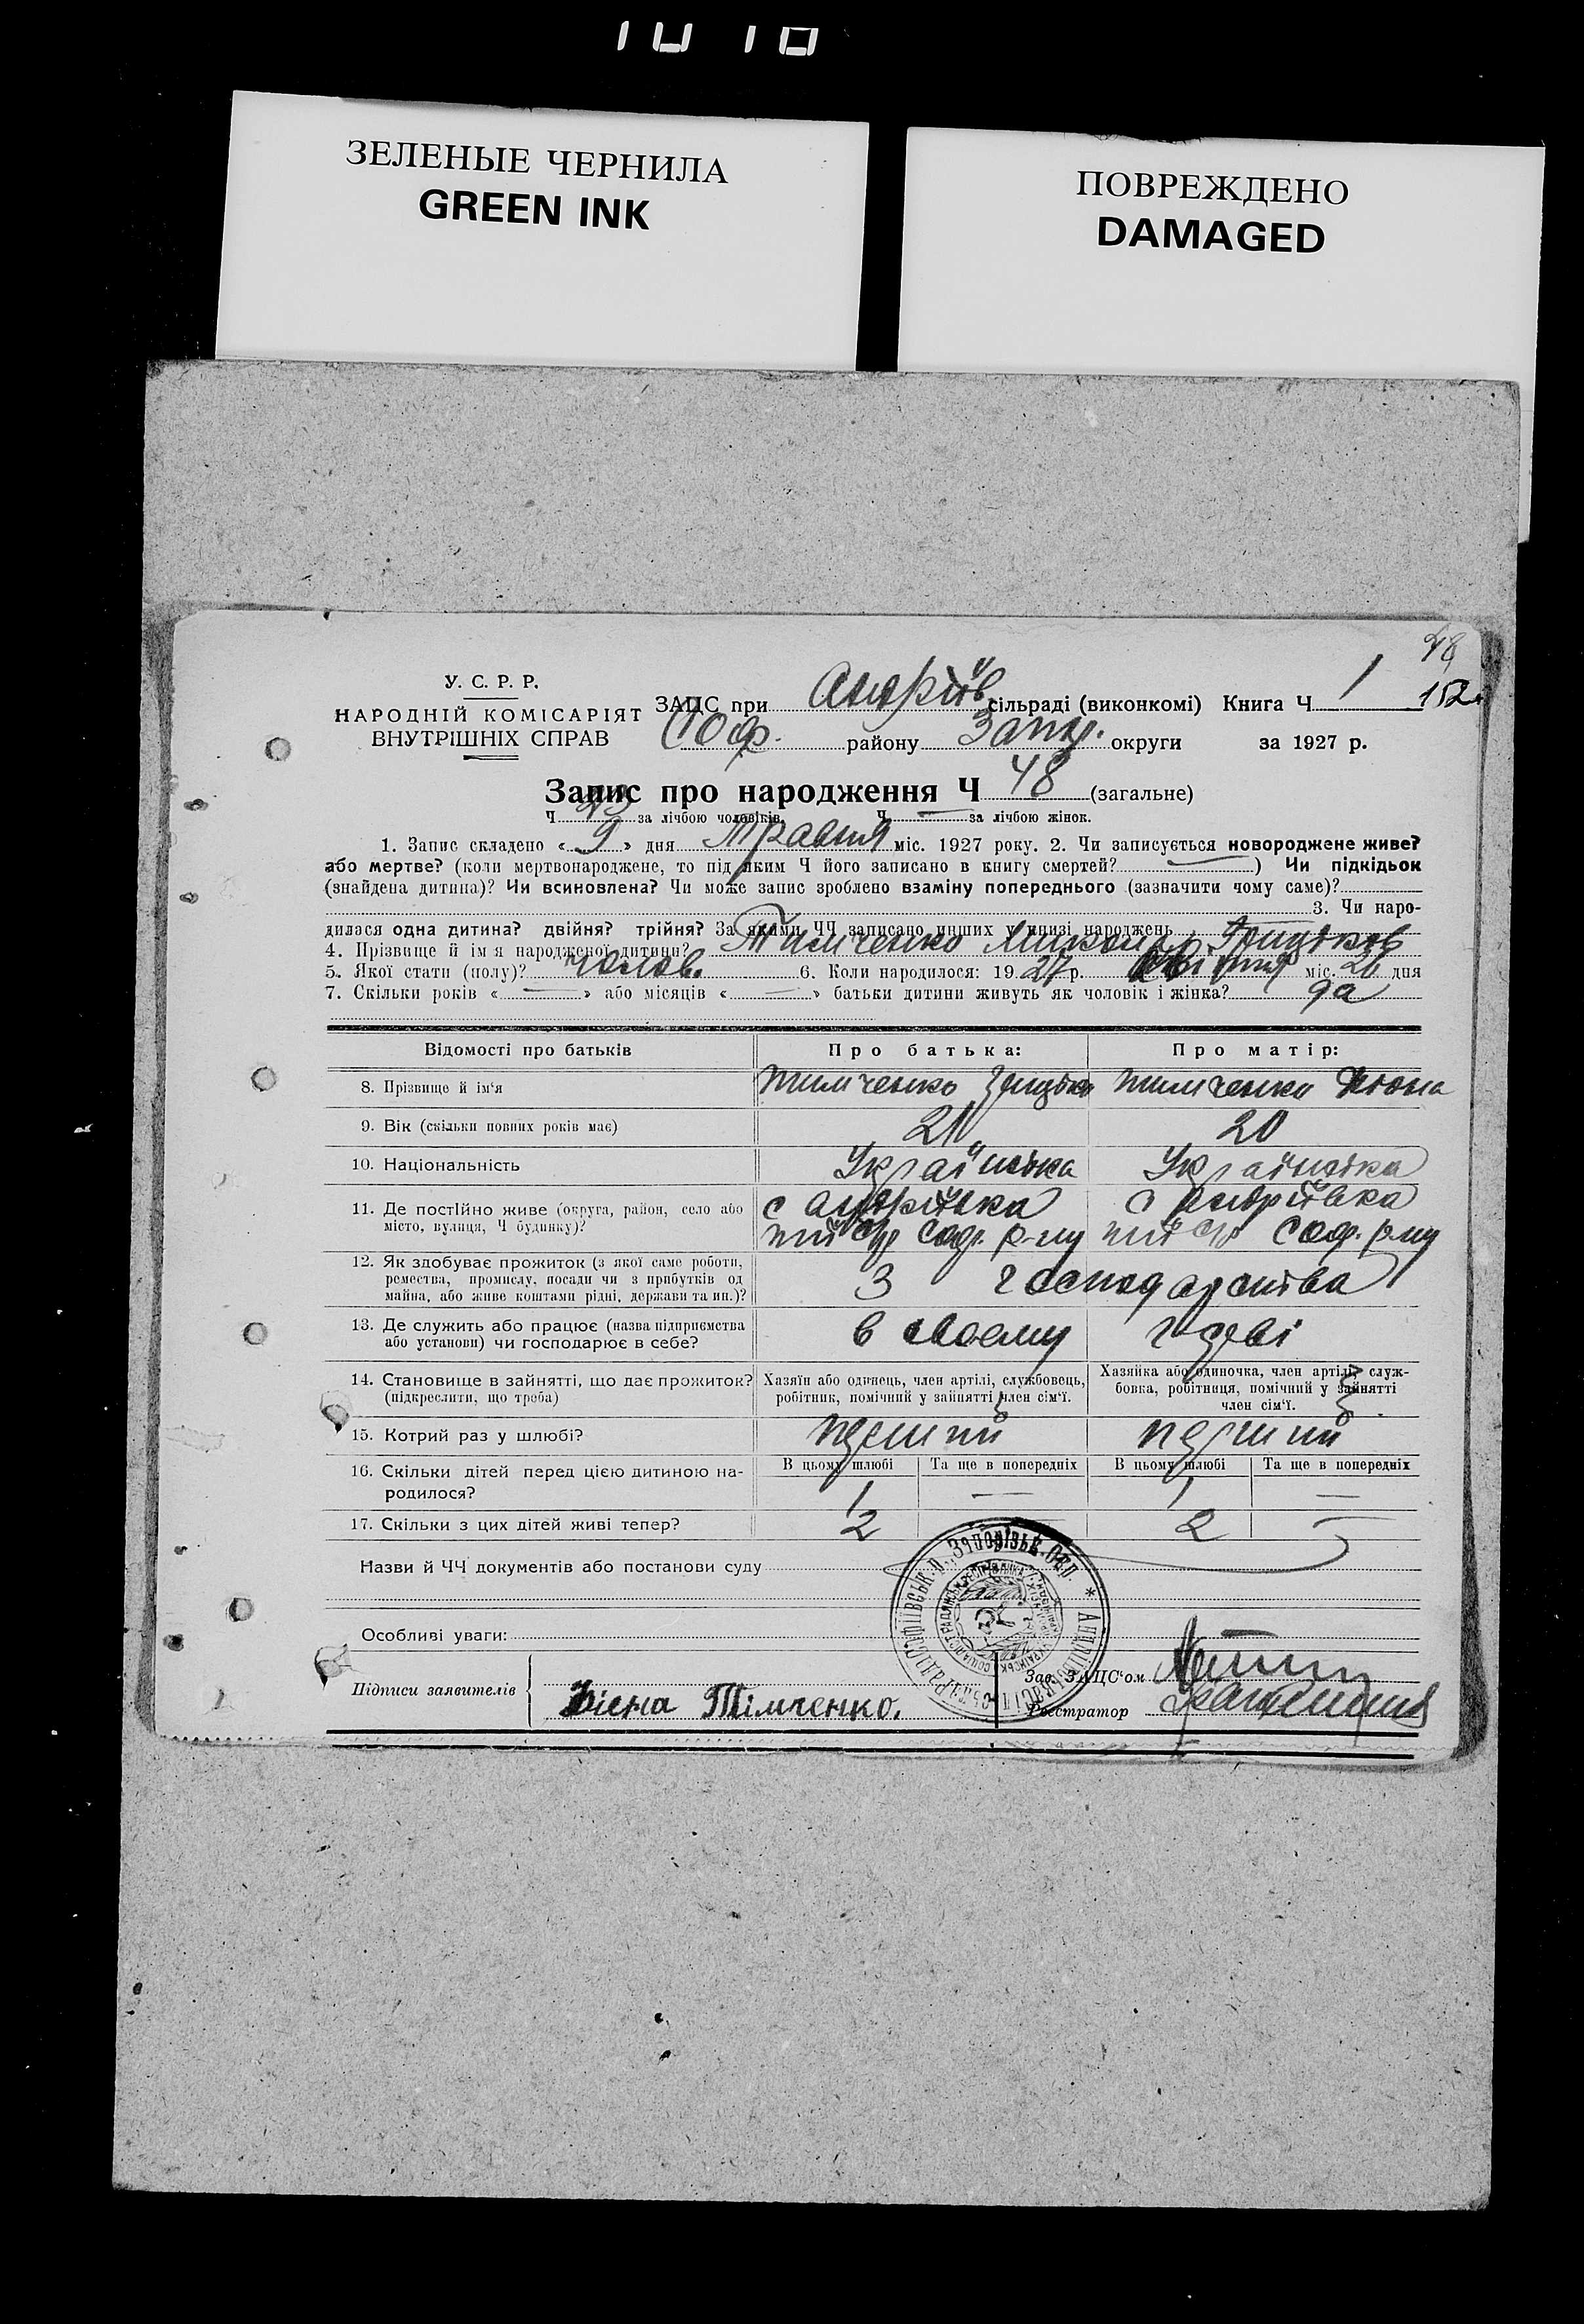 ЗЕЛЕНЫЕ ЧЕРНИЛА
GREEN INK
ПОВРЕЖДЕНО
DAMAGED
48
152
У. С. Р. Р.
НАРОДНІЙ КОМІСАРІЯТ
ВНУТРІШНІХ СПРАВ
ЗАЦС при Андріїв сільраді (виконкомі) Книга Ч 1
Соф. району Запор. округи за 1927 р.
Запис про народження Ч 48 (загальне)
Ч 23 за лічбою чоловіків. Ч — за лічбою жінок.
1. Запис складено « 9 » дня Травня міс. 1927 року. 2. Чи записується новороджене живе?
або мертве? (коли мертвонароджене, то під яким Ч його записано в книгу смертей? — ) Чи підкідьок
(знайдена дитина)? Чи всиновлена? Чи може запис зроблено взаміну попереднього (зазначити чому саме)?
3. Чи наро-
дилася одна дитина? двійня? трійня? За якими ЧЧ записано инших у книзі народжень
4. Прізвище й ім'я народженої дитини? Тимченко Микола
5. Якої стати (полу)? чолов. 6. Коли народилося: 1927 р. Квітня міс. 26 дня
7. Скільки років « — » або місяців « — » батьки дитини живуть як чоловік і жінка? да
Відомості про батьків Про батька: Про матір:
8. Прізвище й ім'я Тимченко Тимченко
9. Вік (скільки повних років має) 21 20
10. Національність Українка Українка
11. Де постійно живе (округа, район, село або
місто, вулиця, Ч будинку)?
с Андріївка с Андріївка
Соф. р-ну Соф. р-ну
12. Як здобуває прожиток (з якої саме роботи,
ремества, промислу, посади чи з прибутків од
майна, або живе коштами рідні, держави та ин.)?
З господарства
13. Де служить або працює (назва підприємства
або установи) чи господарює в себе?
в своему г-дстві
14. Становище в зайнятті, що дає прожиток?
(підкреслити, що треба)
Хазяїн або одинець, член артілі, службовець,
робітник, помічний у зайнятті член сім'ї.
Хазяйка або одиночка, член артілі, служ-
бовка, робітниця, помічний у зайнятті
член сім'ї.
15. Котрий раз у шлюбі? перший перший
16. Скільки дітей перед цією дитиною на-
родилося?
В цьому шлюбі Та ще в попередніх В цьому шлюбі Та ще в попередніх
1 — 1 —
17. Скільки з цих дітей живі тепер? 2 — 2 —
Назви й ЧЧ документів або постанови суду
Особливі уваги:
Підписи заявителів
Тімченко.
Зав. ЗАЦС'ом
Реєстратор